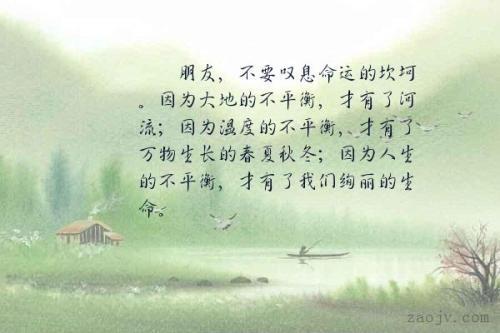 朋友，不要叹息命运的坎坷
。因为大地的不平衡，才有了河
流；因为温度的不平衡，才有了
万物生长的春夏秋冬；因为人生
的不平衡，才有了我们绚丽的生
命。
zaojv.com